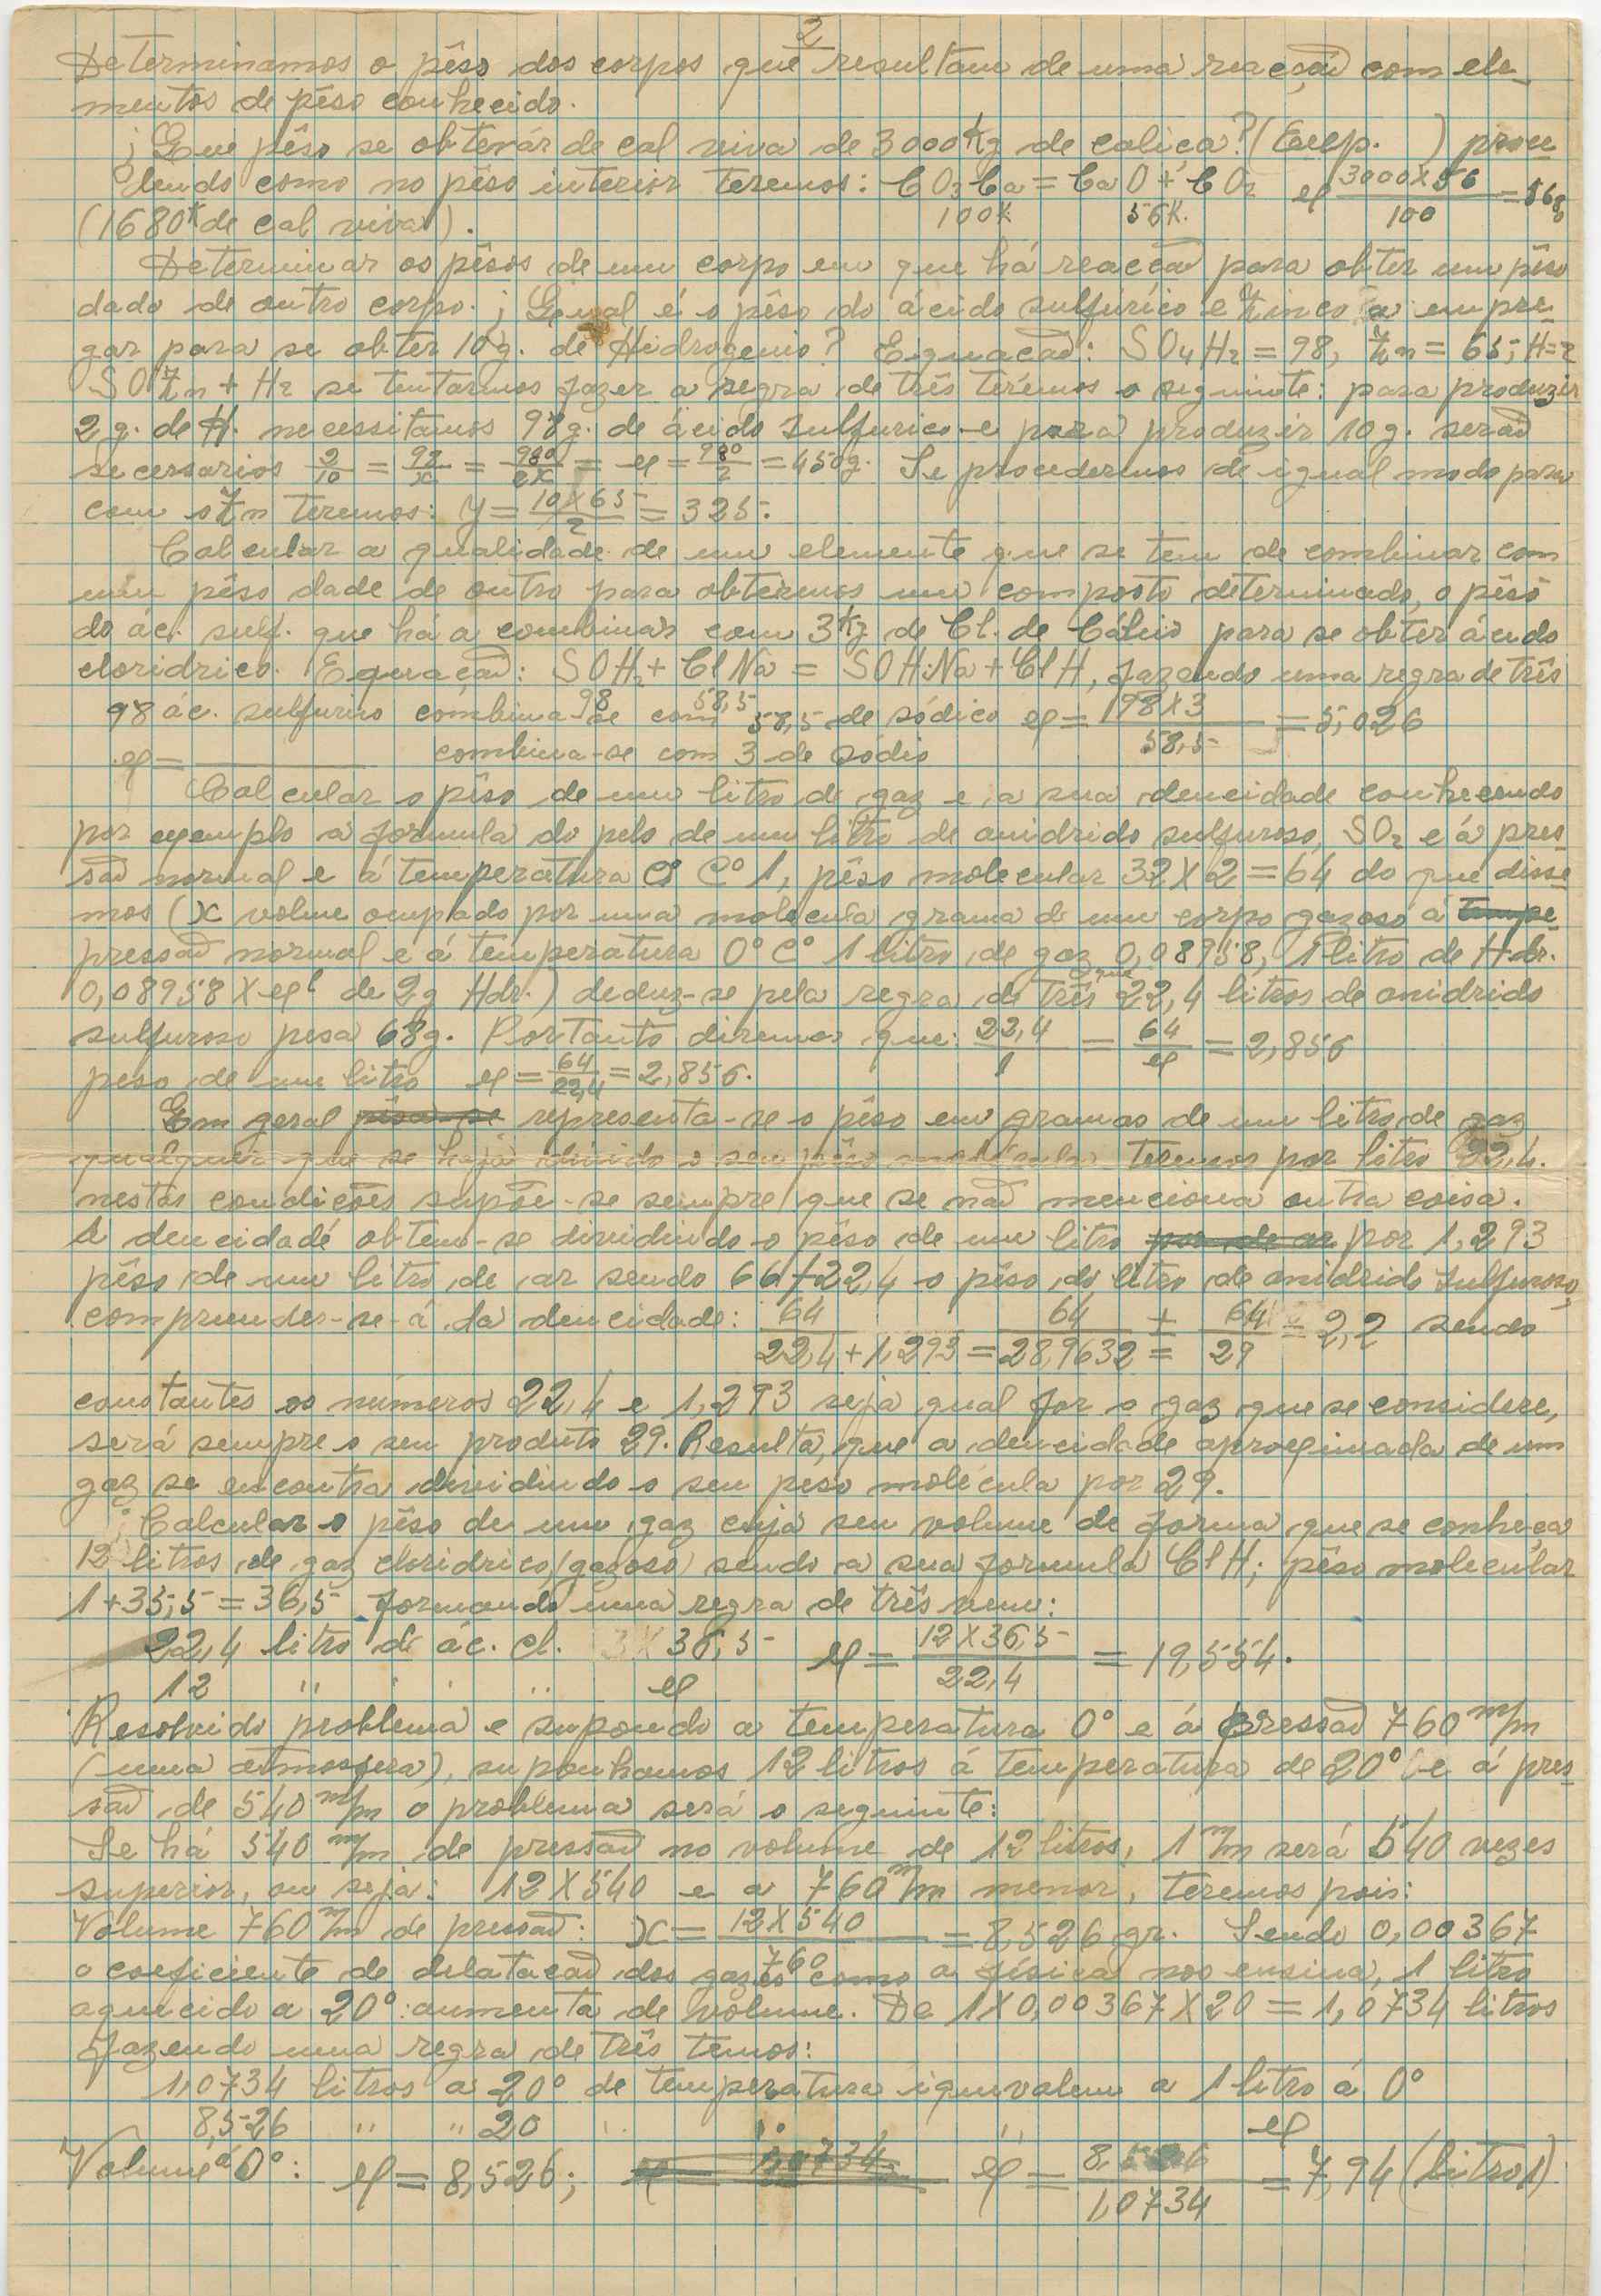 2
Determinamos o pêso dos corpos que resultam de uma reacção com ele-
mentos de pêso conhecido.
¿ Que pêso se obterár de cal viva de 3000Kg de caliça? (Exep. ) proce
dendo como no pêso interior teremos: CO3Ca = CaO + CO2 x 3000X56 / 100 = 
100K. 56K.
(1680K de cal viva).
Determinar os pêsos de um corpo em que há reacção para obter um pêso
dado de outro corpo. ¿ Qual é o pêso do ácido sulfúrico e Zinco a empre
gar para se obter 10g. de Hidrogenio? Equação: SO4H2 = 98, Zn = 65; H=2
SOZn + H2 se tentarmos fazer a regra de três terêmos o seguinte: para produzir
2g. de H. necessitamos 98g. de ácido sulfurico e para produzir 10g. serão
necessarios 2/10 = 98/x = 980/2x = x = 980/2 = 450g. Se procedermos de igual modo para
com o Zn teremos: y = 10X65/2 = 325.
Calcular a qualidade de um elemente que se tem de combinar com
um pêso dade de outro para obtermos um composto determinado, o pêso
do ác. sulf. que há a combinar com 3Kg de Cl. de Cálcio para se obter ácido
cloridrico. Equação: SOH2 + ClNa = SOH:Na + ClH, fazendo uma regra de três
98 58,5
98 ác. sulfurico combina-se com 58,5 de sódico x = 98X3 / 58,5 = 5,026
x = combina-se com 3 de sódio
Calcular o pêso de um litro de gaz e a sua dencidade conhecendo
por exemplo a formula do pelo de um litro de anidrido sulfuroso, SO2 e á pres-
são normal e á temperatura 0° C° 1, pêso molecular 32X2=64 do que disse-
mos (x volme ocupado por uma molecula grama de um corpo gazoso á tempe
pressão normal e á temperatura 0° C° 1 litro de gaz 0,08958, 1 litro de Hdr.
0,08958 X x l de 2g Hdr.) deduz-se pela regra de três que 22,4 litros de anidrido
sulfuroso pesa 68g. Portanto diremos que: 22,4/1 = 64/x = 2,856
peso de um litro x = 64/22,4 = 2,856.
Em geral pêsa-se representa-se o pêso em gramas de um litro de gaz
qualquer que se haja divido o seu pêso molécula teremos por litro 22,4.
nestas condições supõe-se sempre que se não menciona outra coisa.
A dencidade obtem-se dividindo o pêso de um litro por de ar por 1,293
pêso de um litro de ar sendo 66÷22,4 o pêso do litro de anidrido sulfuroso,
compreender-se-á da dencidade: 64 / 22,4+1,293 = 64 / 28,9632 = ± 64 / 29 = 2,2 sendo
constantes os números 22,4 e 1,293 seja qual for o gaz que se considere,
será sempre o seu produto 29. Resulta, que a dencidade aproximada de um
gaz se encontra dividindo o seu peso molécula por 29.
Calcular o pêso de um gaz cuja seu volume de forma que se conheça
12 litros de gaz cloridrico (gazoso) sendo a sua formula ClH; pêso molecular
1+35,5 = 36,5 formando uma regra de três vem:
22,4 litro de ác. cl. 36,5 x = 12X36,5 / 22,4 = 19,554.
12 " " " " x
Resolvido problema e supondo a temperatura 0° e á pressão 760 m/m
(uma atmosfera), suponhamos 12 litros á temperatura de 20° e á pres-
são de 540 m/m o problema será o seguinte:
Se há 540 m/m de pressão no volume de 12 litros, 1 m/m será 540 vezes
superior, ou seja: 12X540 e a 760 m/m menor, teremos pois:
Volume 760 m/m de pressão: x = 12X540 / 760 = 8,526 gr. Sendo 0,00367
o coeficiente de dilatação dos gazes como a física nos ensina, 1 litro
aquecido a 20° aumenta de volume. De 1X0,00367X20 = 1,0734 litros
fazendo uma regra de três temos:
1,0734 litros a 20° de temperatura iquivalem a 1 litro á 0°
8,526 " " 20 " " " x
Volume á 0°: x = 8,526; x = 1,0734 x = 8,526 / 1,0734 = 7,94 (litros)